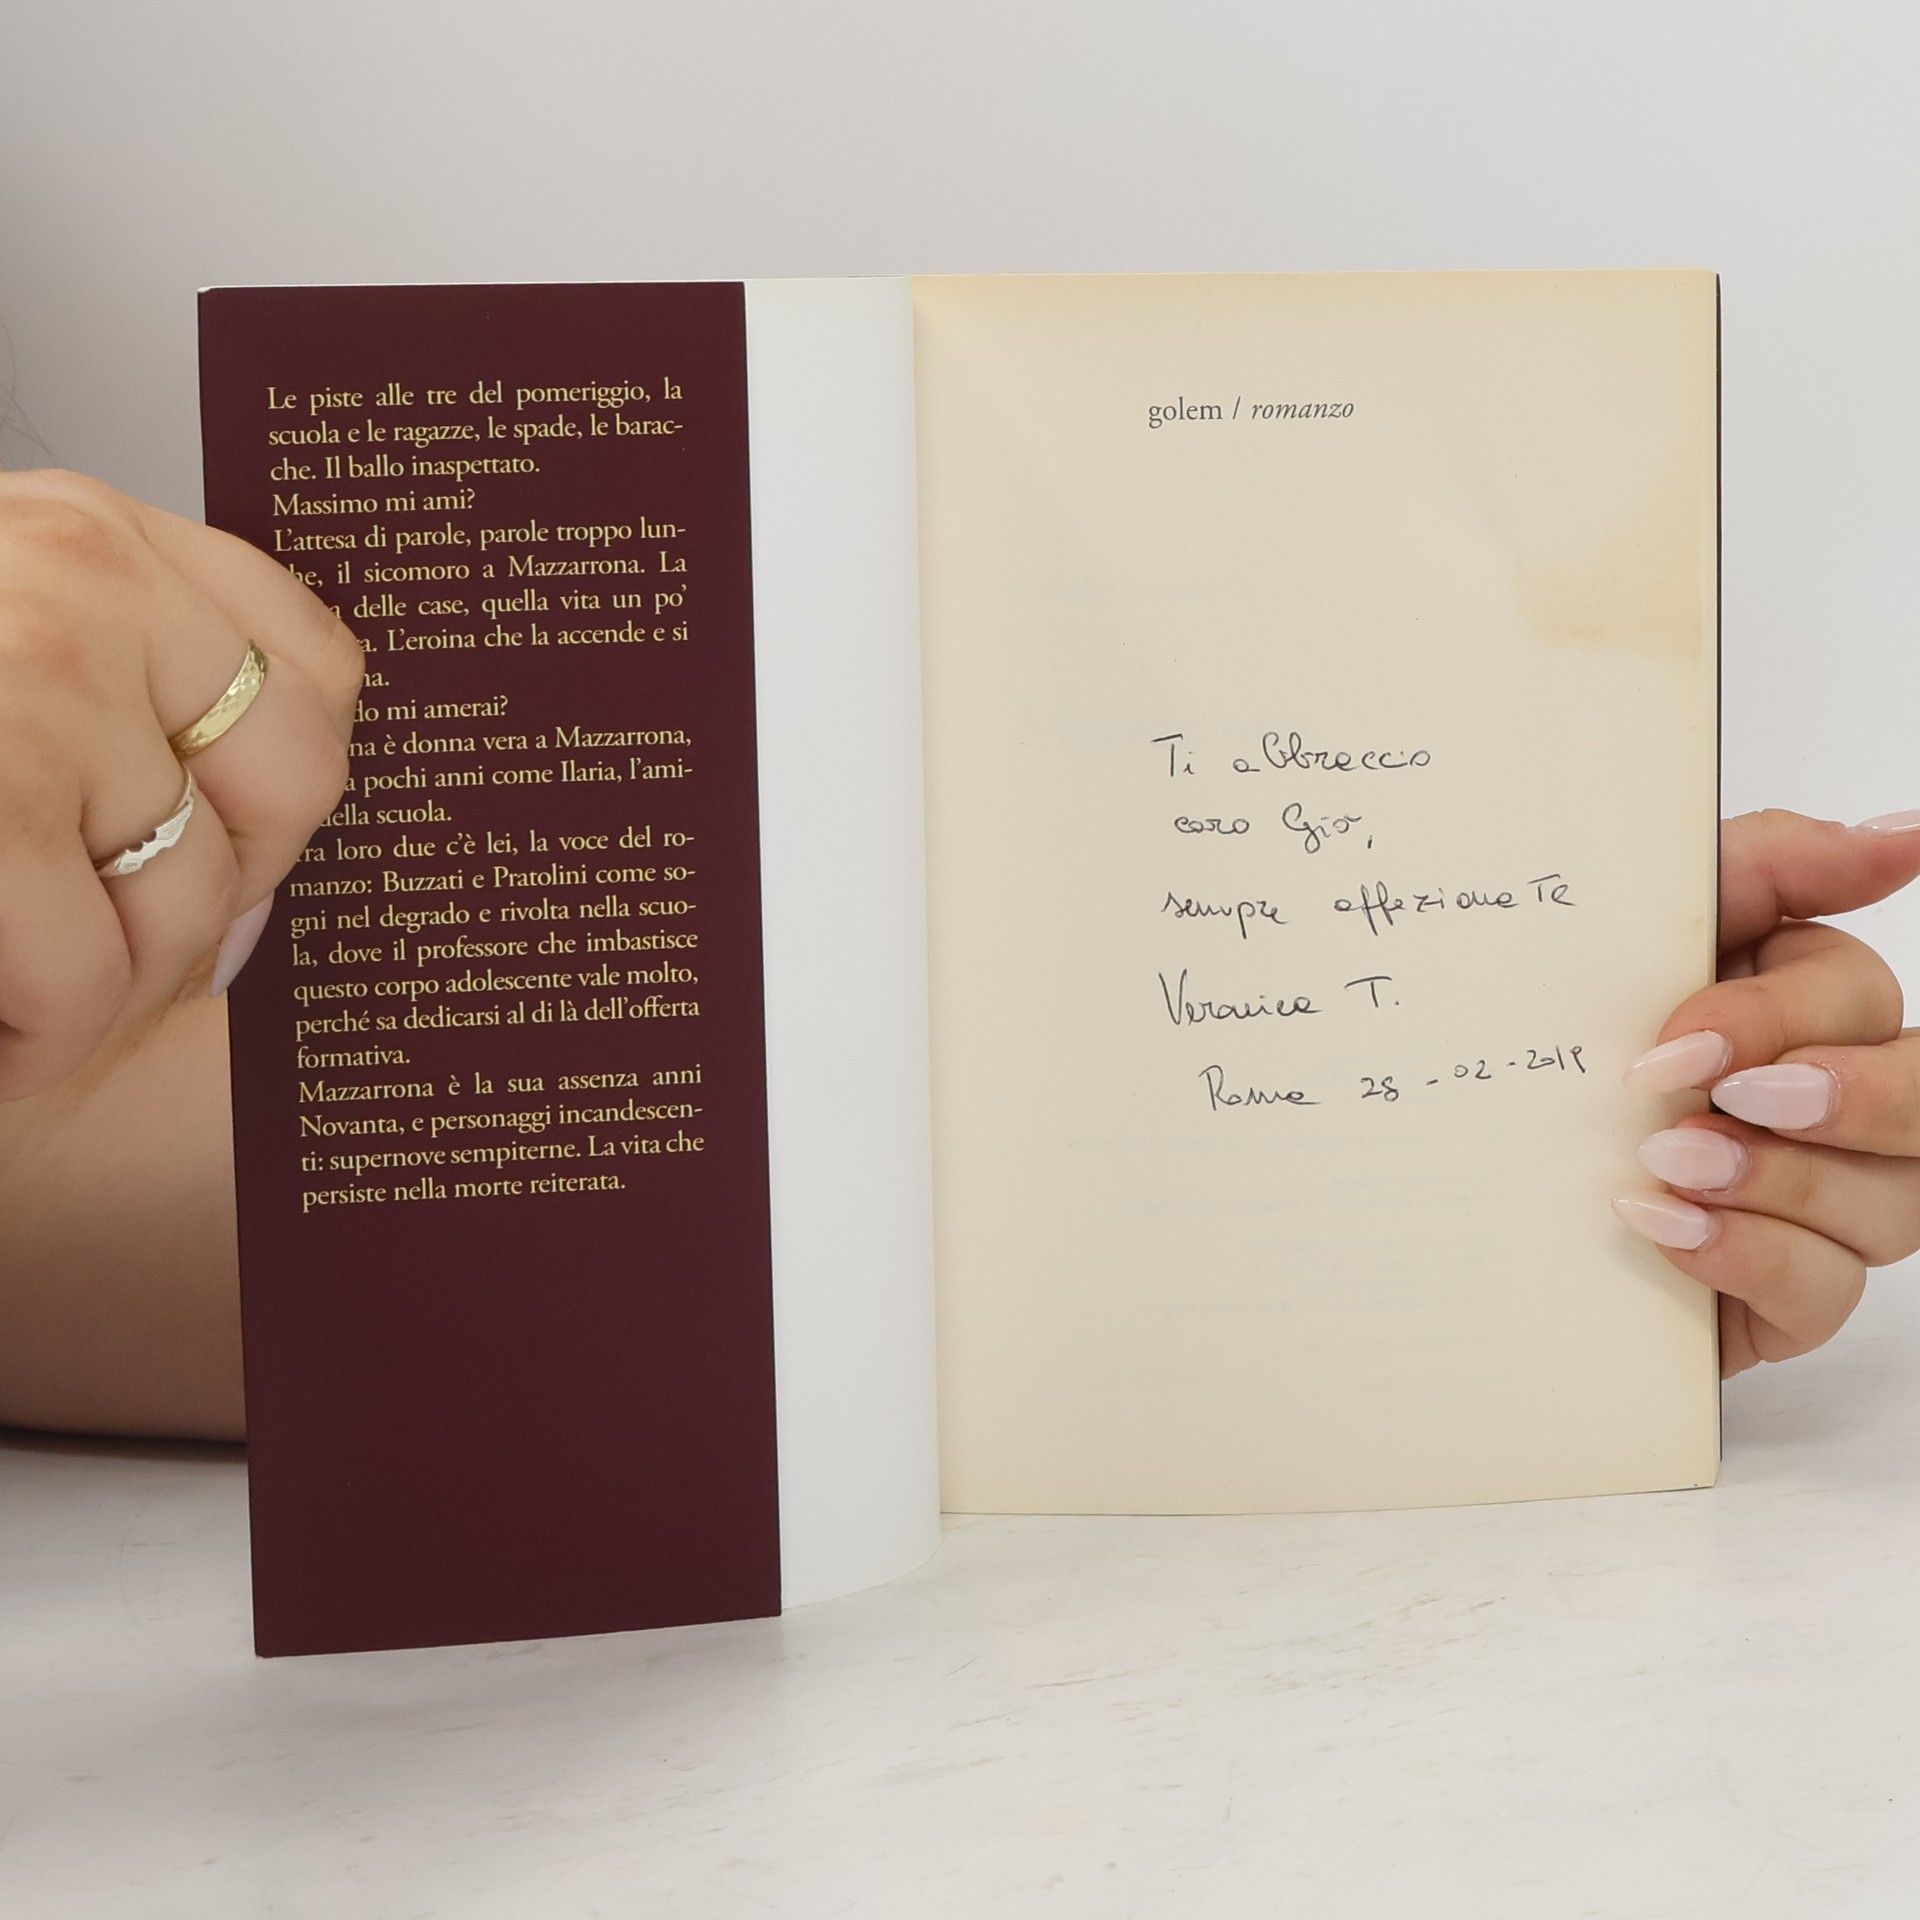 Le piste alle tre del pomeriggio, la
scuola e le ragazze, le spade, le barac-
che. Il ballo inaspettato.
Massimo mi ami?
L'attesa di parole, parole troppo lun-
he, il sicomoro a Mazzarrona. La
delle case, quella vita un po'
a. L'eroina che la accende e si
na.
do mi amerai?
na è donna vera a Mazzarrona,
a pochi anni come Ilaria, l'ami-
ella scuola.
ra loro due c'è lei, la voce del ro-
manzo: Buzzati e Pratolini come so-
gni nel degrado e rivolta nella scuo-
la, dove il professore che imbastisce
questo corpo adolescente vale molto,
perché sa dedicarsi al di là dell'offerta
formativa.
Mazzarrona è la sua assenza anni
Novanta, e personaggi incandescen-
ti: supernove sempiterne. La vita che
persiste nella morte reiterata.
golem / romanzo
Ti abbraccio
caro Giò,
sempre affezionaTe
Veronica T.
Roma 28 - 02 - 2019